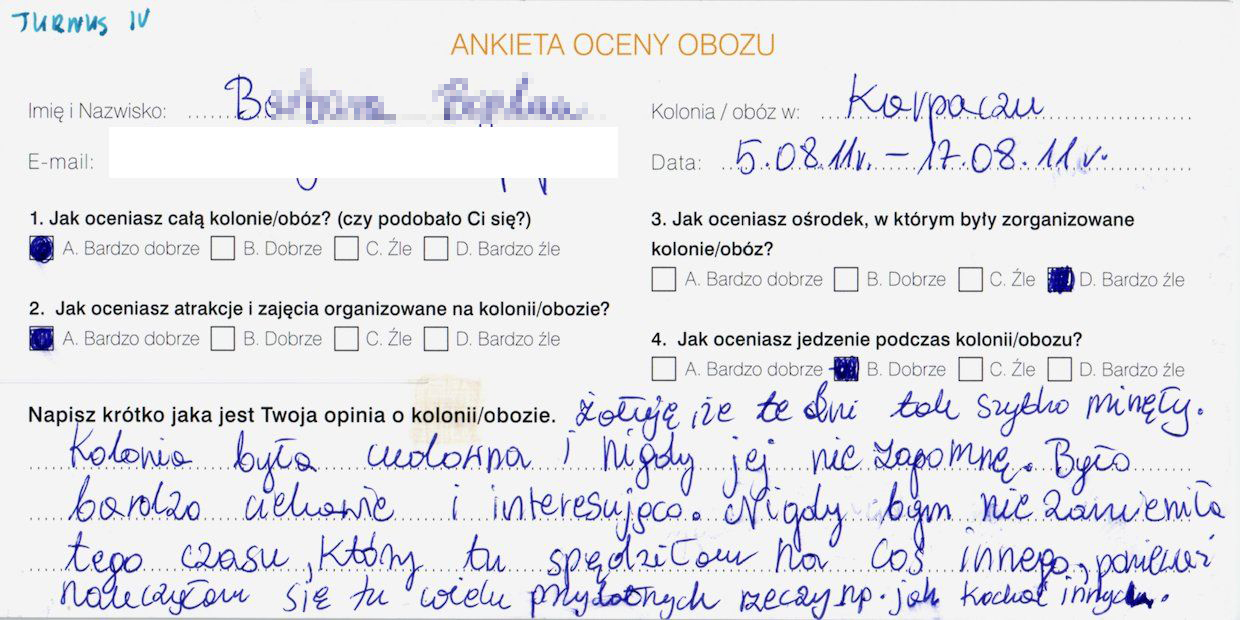 TURNUS IV
ANKIETA OCENY OBOZU
Imię i Nazwisko:
Kolonia / obóz w: Karpaczu
E-mail:
Data: 5.08.11r. – 17.08.11r.
1. Jak oceniasz całą kolonie/obóz? (czy podobało Ci się?)
A. Bardzo dobrze B. Dobrze C. Źle D. Bardzo źle
2. Jak oceniasz atrakcje i zajęcia organizowane na kolonii/obozie?
A. Bardzo dobrze B. Dobrze C. Źle D. Bardzo źle
3. Jak oceniasz ośrodek, w którym były zorganizowane
kolonie/obóz?
A. Bardzo dobrze B. Dobrze C. Źle D. Bardzo źle
4. Jak oceniasz jedzenie podczas kolonii/obozu?
A. Bardzo dobrze B. Dobrze C. Źle D. Bardzo źle
Napisz krótko jaka jest Twoja opinia o kolonii/obozie. Żałuję, że te dni tak szybko minęły.
Kolonia była cudowna i nigdy jej nie zapomnę. Było
bardzo ciekawie i interesująco. Nigdy bym nie zamieniła
tego czasu, który tu spędziłam na coś innego, ponieważ
nauczyłam się tu wielu przydatnych rzeczy np. jak kochać innych.